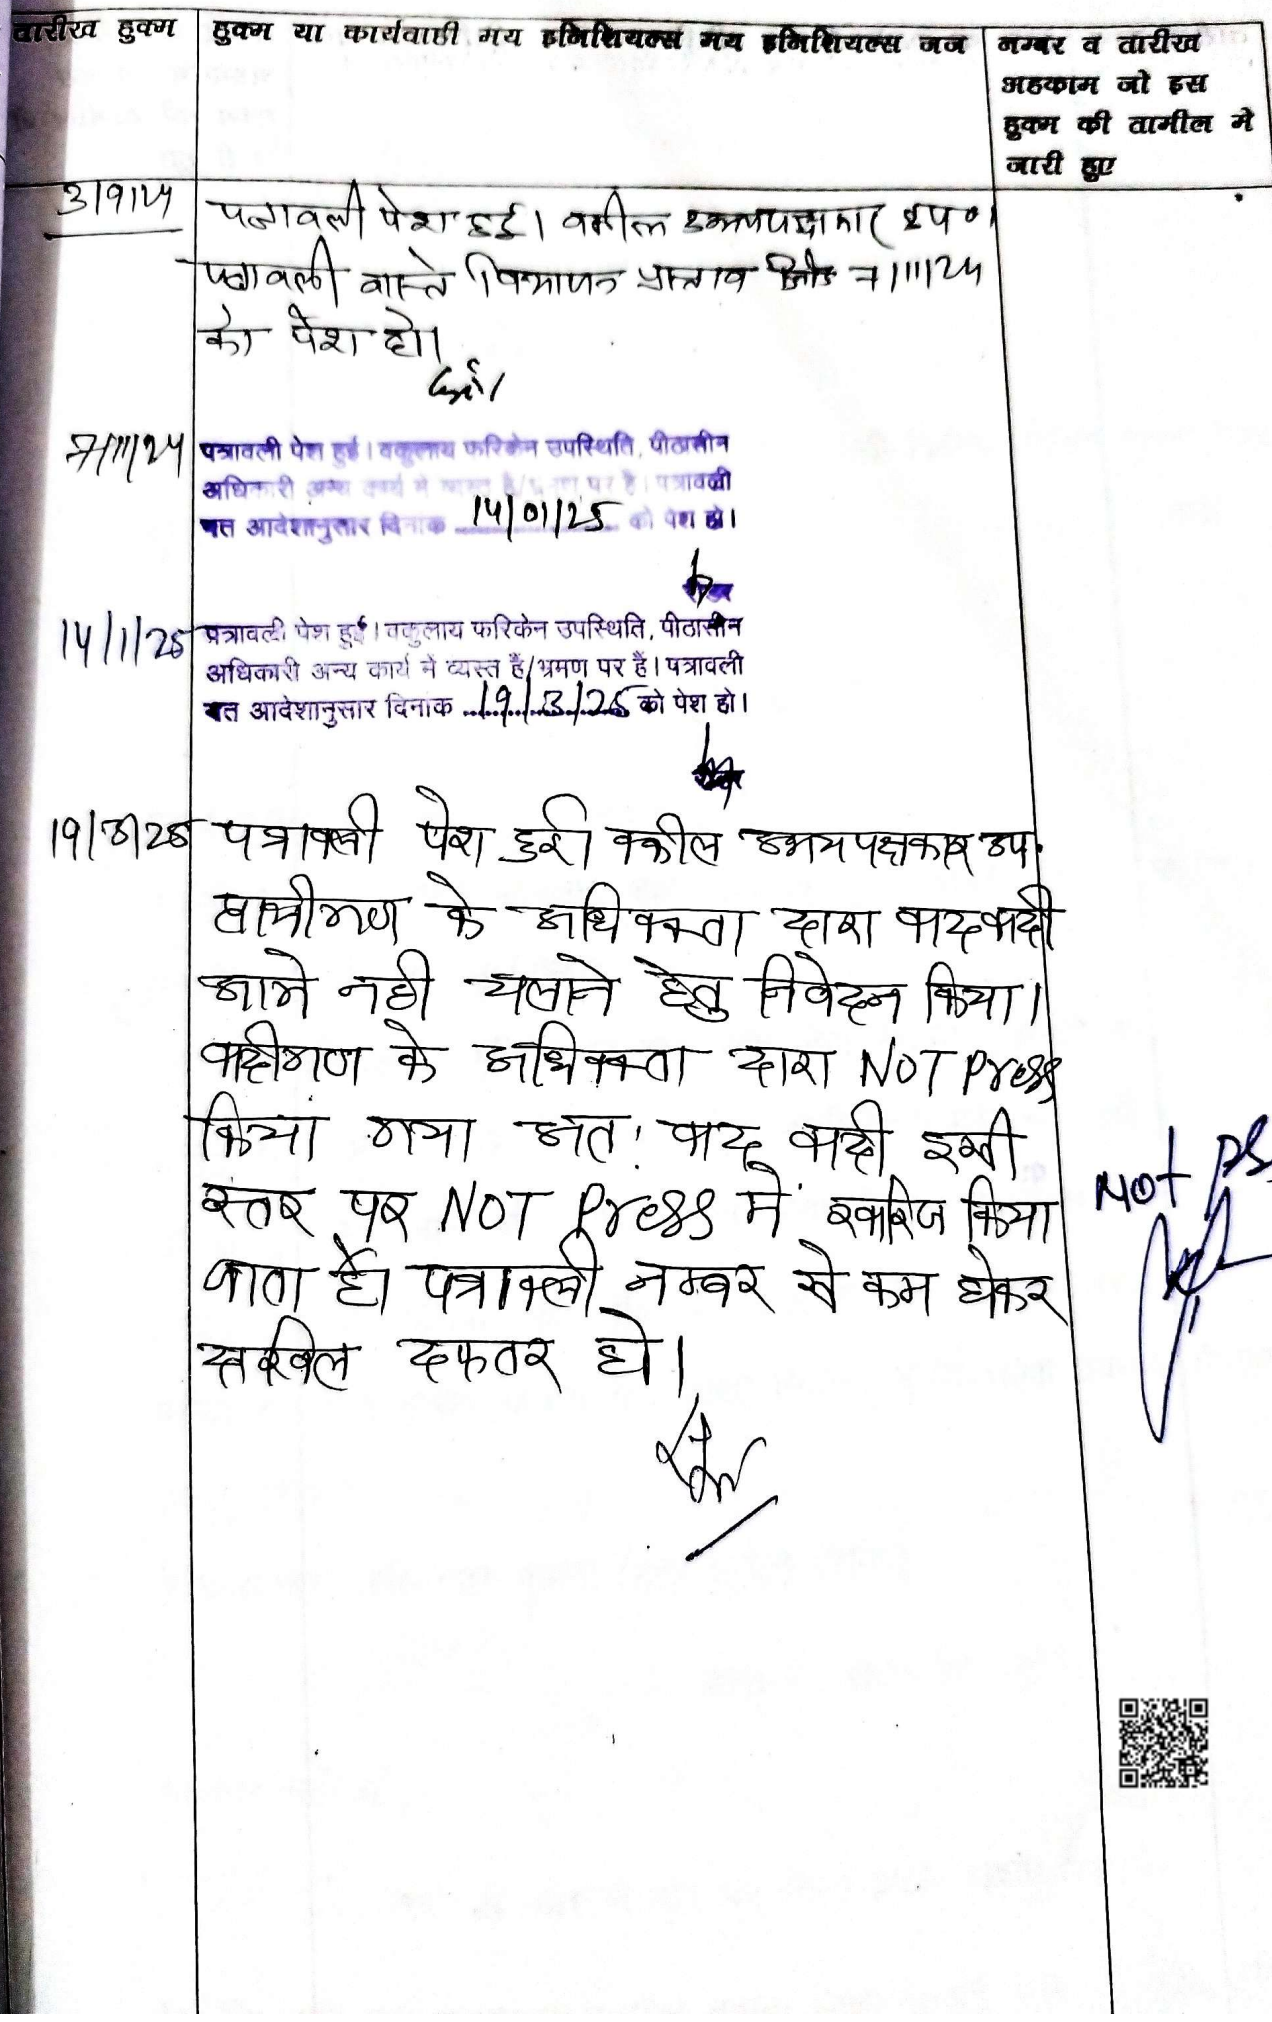 तारीख हुक्म
हुक्म या कार्यवाही मय इनिशियल्स मय इनिशियल्स जज
नम्बर व तारीख
अहकाम जो इस
हुक्म की तामील मे
जारी हुए
3/9/24
पत्रावली पेश हुई। वकील उभयपक्षकार उप०।
पत्रावली वास्ते विभाजन प्रस्ताव 7/11/24
को पेश हो।
7/11/24
पत्रावली पेश हुई। वकुलाय फरिकेन उपस्थिति, पीठासीन
अधिकारी अन्य कार्य में व्यस्त है/भ्रमण पर है। पत्रावली
वत आदेशानुसार दिनांक 14/01/25 को पेश हो।
14/1/25
पत्रावली पेश हुई। वकुलाय फरिकेन उपस्थिति, पीठासीन
अधिकारी अन्य कार्य में व्यस्त हैं/भ्रमण पर हैं। पत्रावली
वत आदेशानुसार दिनांक 19/3/25 को पेश हो।
19/3/25
पत्रावली पेश हुई। वकील उभयपक्षकार उप.
प्रार्थीगण के अधिवक्ता द्वारा वादवादी
आगे नही चलाने हेतु निवेदन किया।
वादीगण के अधिवक्ता द्वारा NOT Press
किया गया अत: वाद वादी इसी
स्तर पर NOT Press में खारिज किया
जाता है। पत्रावली नम्बर से कम होकर
दाखिल दफतर हो।
Not